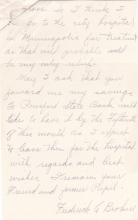 home is I think I
go to the city hospital
in Minneapolis for treatment
as that will probably be
be my only relief.
May I ask that you
forward me my savings
to Prosper State Bank. Will
like to have it by the fiftenth
of this month. As I expect
to leave then for the hospital
with regards and best
wishes. I remain your
friend and former Pupil.
Frederick C.